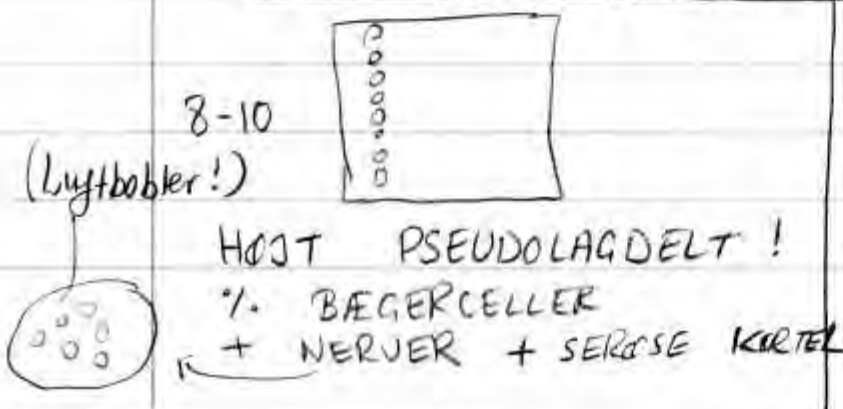 8-10
(Luftbobler!)
HØJT PSEUDOLAGDELT !
٪ BÆGERCELLER
+ NERVER + SERØSE KIRTEL